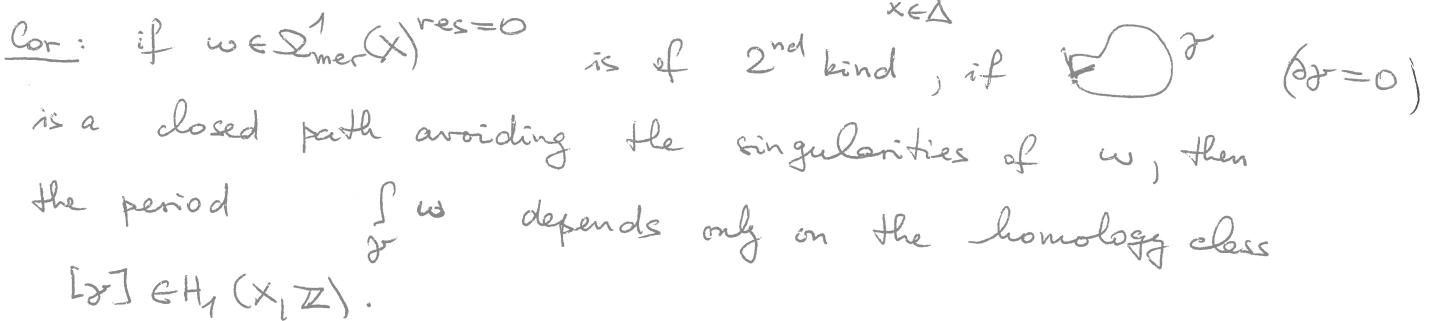 x∈Δ
Cor: if ω ∈ Ω¹mer(X)^res=0 is of 2nd kind, if γ (∂γ=0)
is a closed path avoiding the singularities of ω, then
the period ∫γ ω depends only on the homology class
[γ] ∈ H₁(X, ℤ).